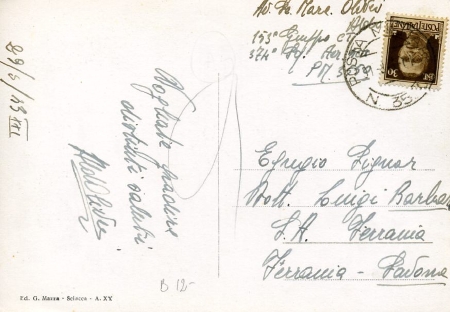 Mar. Olivieri
153° Gruppo C.T.
374° Sq. Aer
PM 3
POSTA
N 35
POSTE ITALIANE
30
29/3/43 XXI
Vogliate gradire
distinti saluti
Egregio Signor
Dott. Luigi Barba
S.A. Ferrania
Ferrania - Savona
B 12-
Ed. G. Massa - Sciacca - A. XV